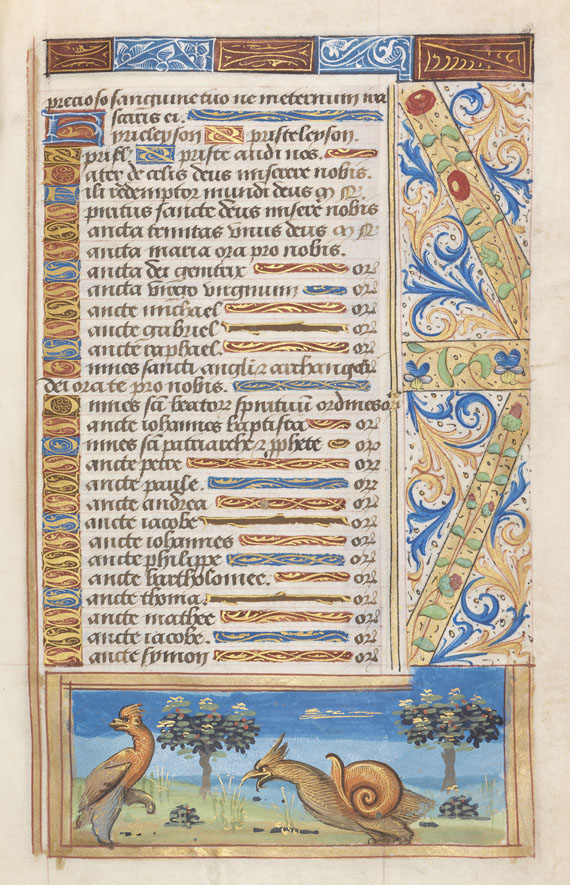 precioso sanguine tuo ne ineternum ira
scaris ei.
Kyrieleyson Xpisteleyson.
Kyriel Xpiste audi nos.
Pater de celis deus miserere nobis.
Fili redemptor mundi deus m n
Spiritus sancte deus misere nobis
Sancta trinitas vnus deus m n
Sancta maria ora pro nobis.
Sancta dei genitrix or
Sancta virgo virginum or
Sancte michael or
Sancte gabriel or
Sancte raphael. or
Omnes sancti angli et archangeli
dei orate pro nobis.
Omnes sci beator spirituum ordines or
Sancte iohannes baptista or
Omnes sci patriarche et pphete or
Sancte petre or
Sancte paule. or
Sancte andrea or
Sancte iacobe or
Sancte iohannes or
Sancte philippe or
Sancte bartholomee. or
Sancte thoma. or
Sancte mathee or
Sancte iacobe. or
Sancte symon or